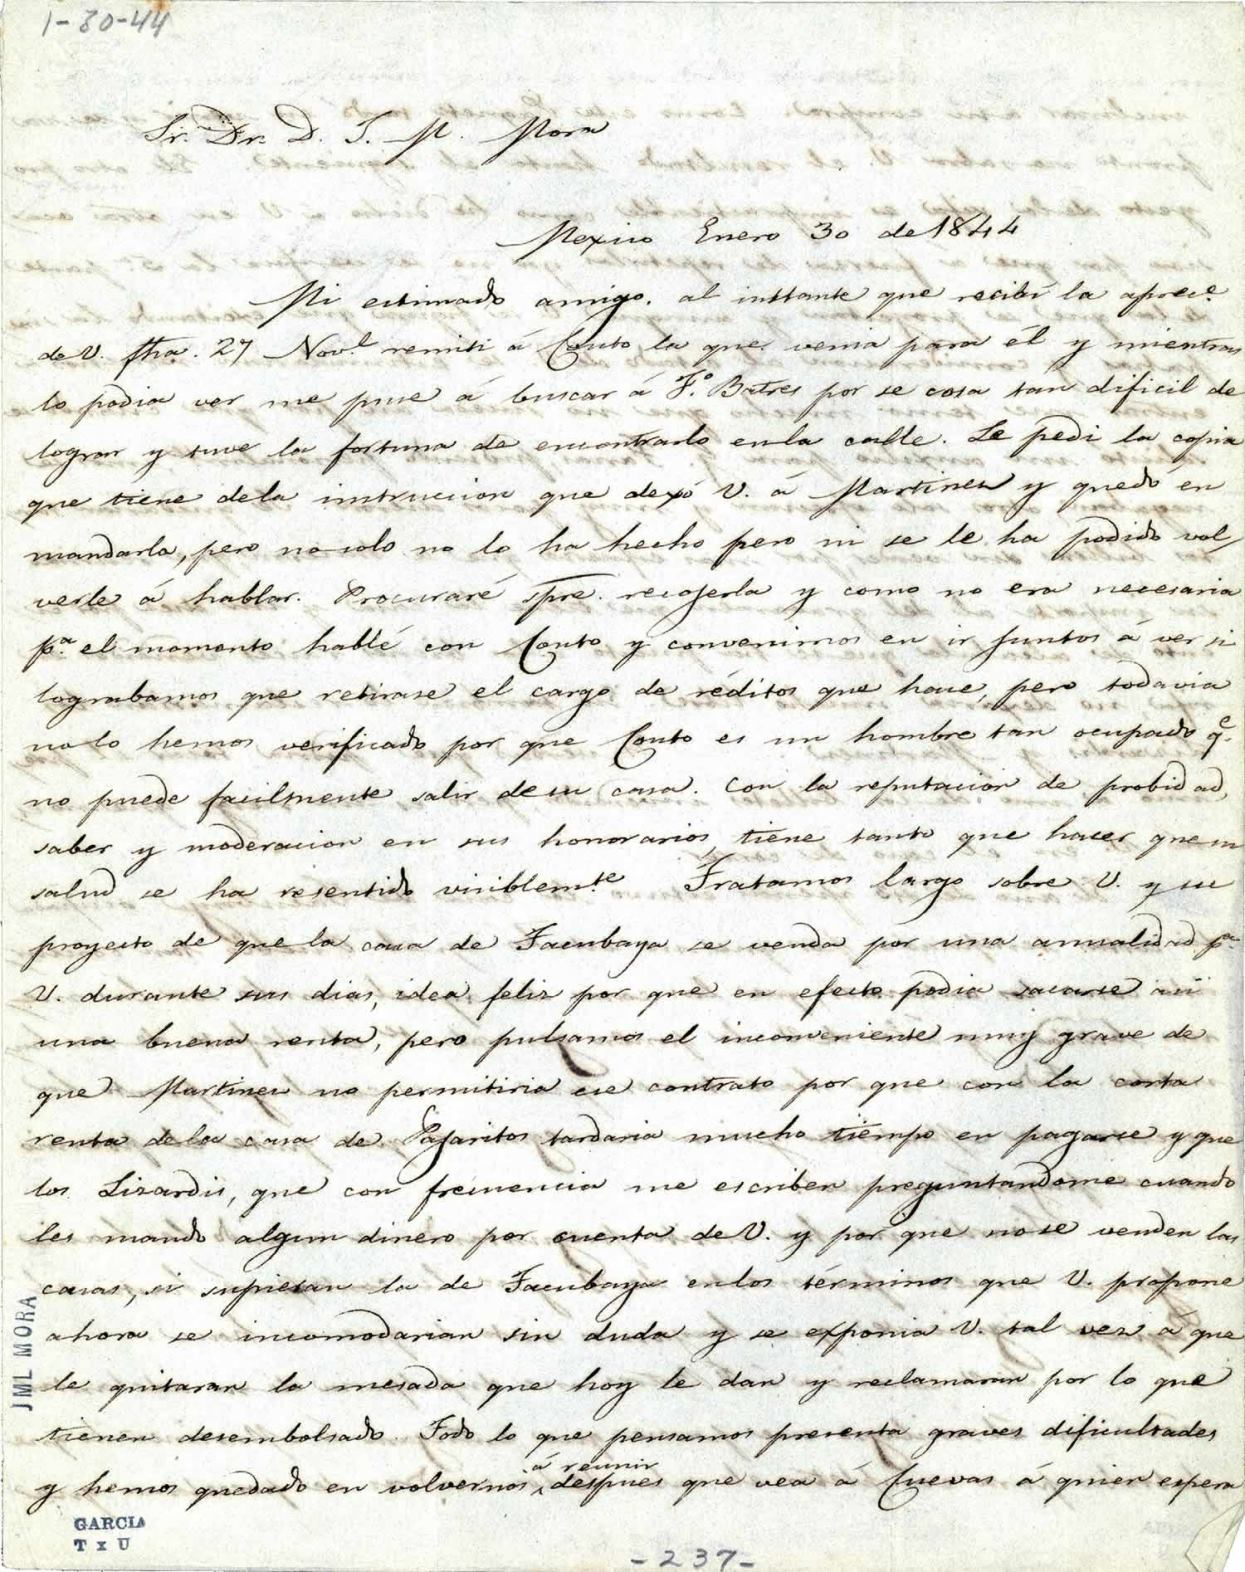 1-30-44
Sr. Dr. D. J. M. Mora
Mexico Enero 30 de 1844
Mi estimado amigo. al instante que recibí la aprec.e
de V. fha. 27 Nov.e remiti á Couto la que venia para él y mientras
lo podia ver me puse á buscar á F.o Batres por se cosa tan dificil de
lograr y tuve la fortuna de encontrarlo en la calle. Le pedi la copia
que tiene dela instruccion que dexó V. á Martinez y quedó en
mandarla, pero no solo no lo ha hecho pero ni se le ha podido vol-
verle á hablar. Procuraré spre. recojerla y como no era necesaria
p.a el momento hablé con Couto y convenimos en ir juntos á ver si
lograbamos que retirase el cargo de réditos que hace, pero todavia
no lo hemos verificado por que Couto es un hombre tan ocupado q.e
no puede facilmente salir de su casa. Con la reputacion de probidad,
saber y moderacion en sus honorarios, tiene tanto que hacer que su
salud se ha resentido visiblem.te Tratamos largo sobre V. y su
proyecto de que la casa de Tacubaya se venda por una anualidad p.a
V. durante sus dias, idea feliz por que en efecto podia sacarse asi
una buena renta, pero pulsamos el inconveniente muy grave de
que Martinez no permitiria ese contrato por que con la corta
renta dela casa de Pajaritos tardaria mucho tiempo en pagarse y que
los Lizardis, que con frecuencia me escriben preguntandome cuando
les mando algun dinero por cuenta de V. y por que no se venden las
casas, si supieran la de Tacubaya en los términos que V. propone
ahora se incomodarian sin duda y se exponia V. tal vez á que
le quitaran la mesada que hoy le dan y reclamaran por lo que
tienen desembolsado. Todo lo que pensamos presenta graves dificultades
á reunir
y hemos quedado en volvernos despues que vea á Cuevas á quien espera
JML MORA
GARCIA
T x U
-237-